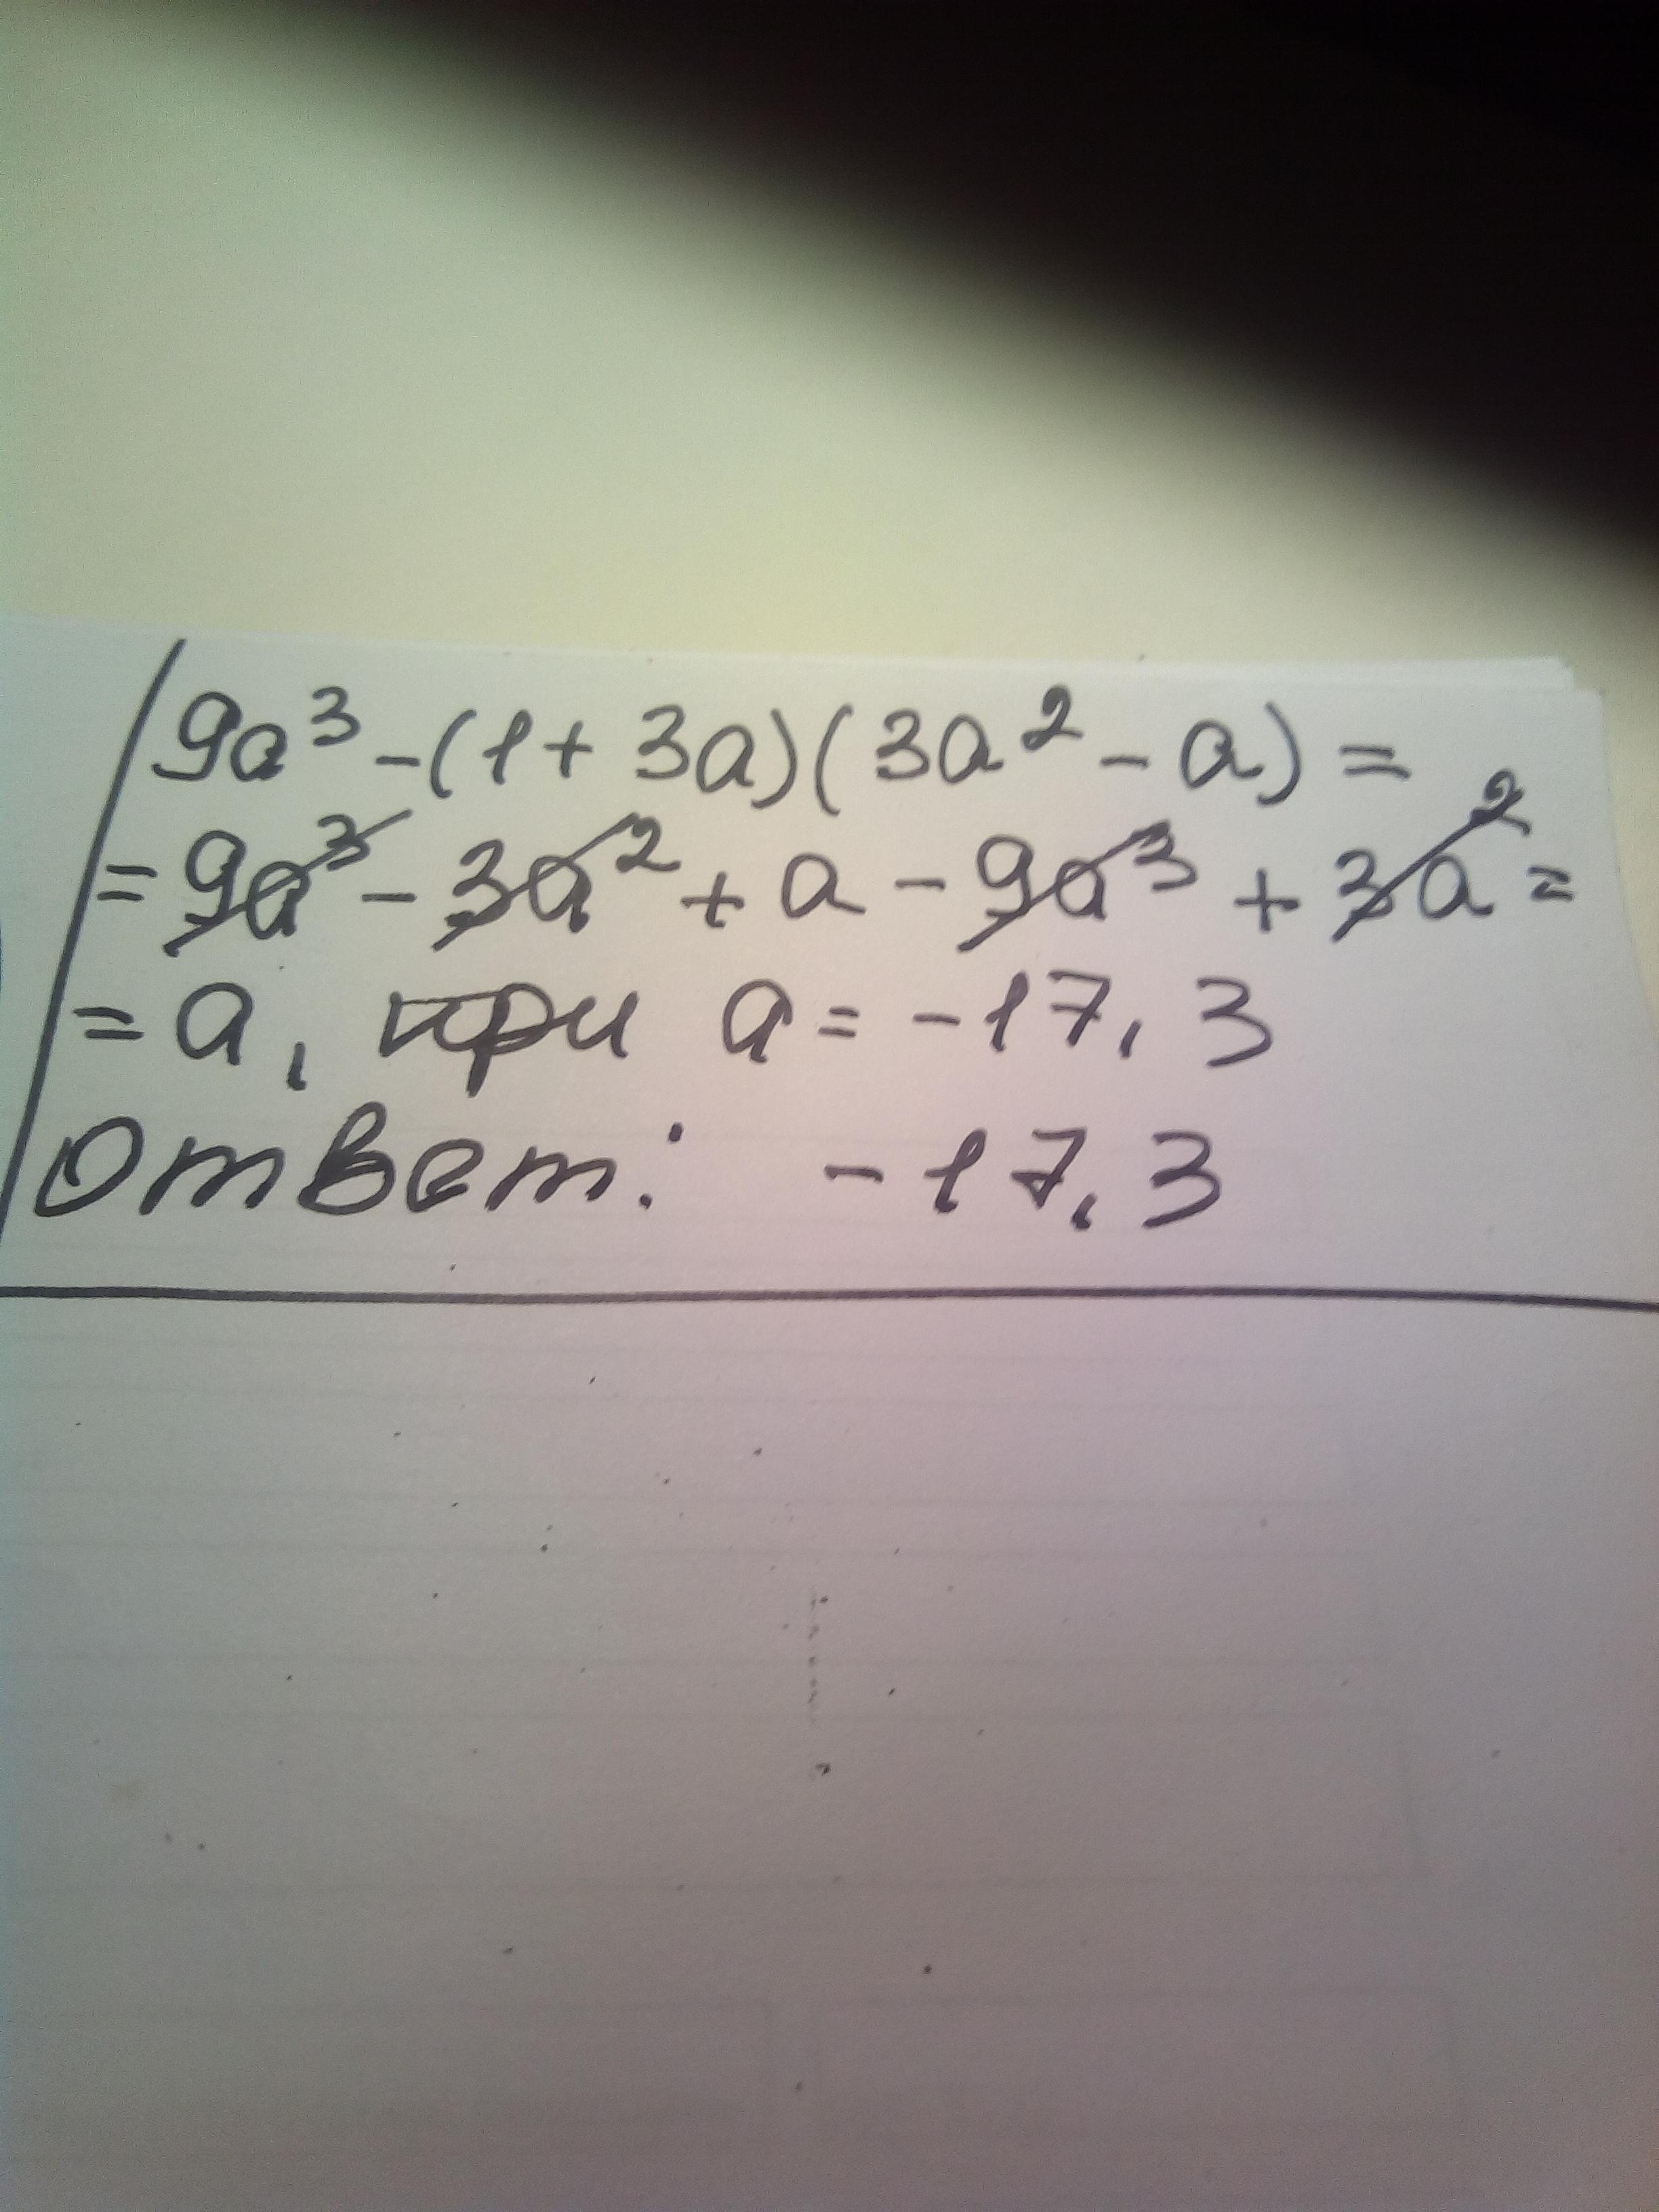 9a³ - (1 + 3a)(3a² - a) =
= 9a³ - 3a² + a - 9a³ + 3a² =
= a, при a = -17,3
Ответ: -17,3